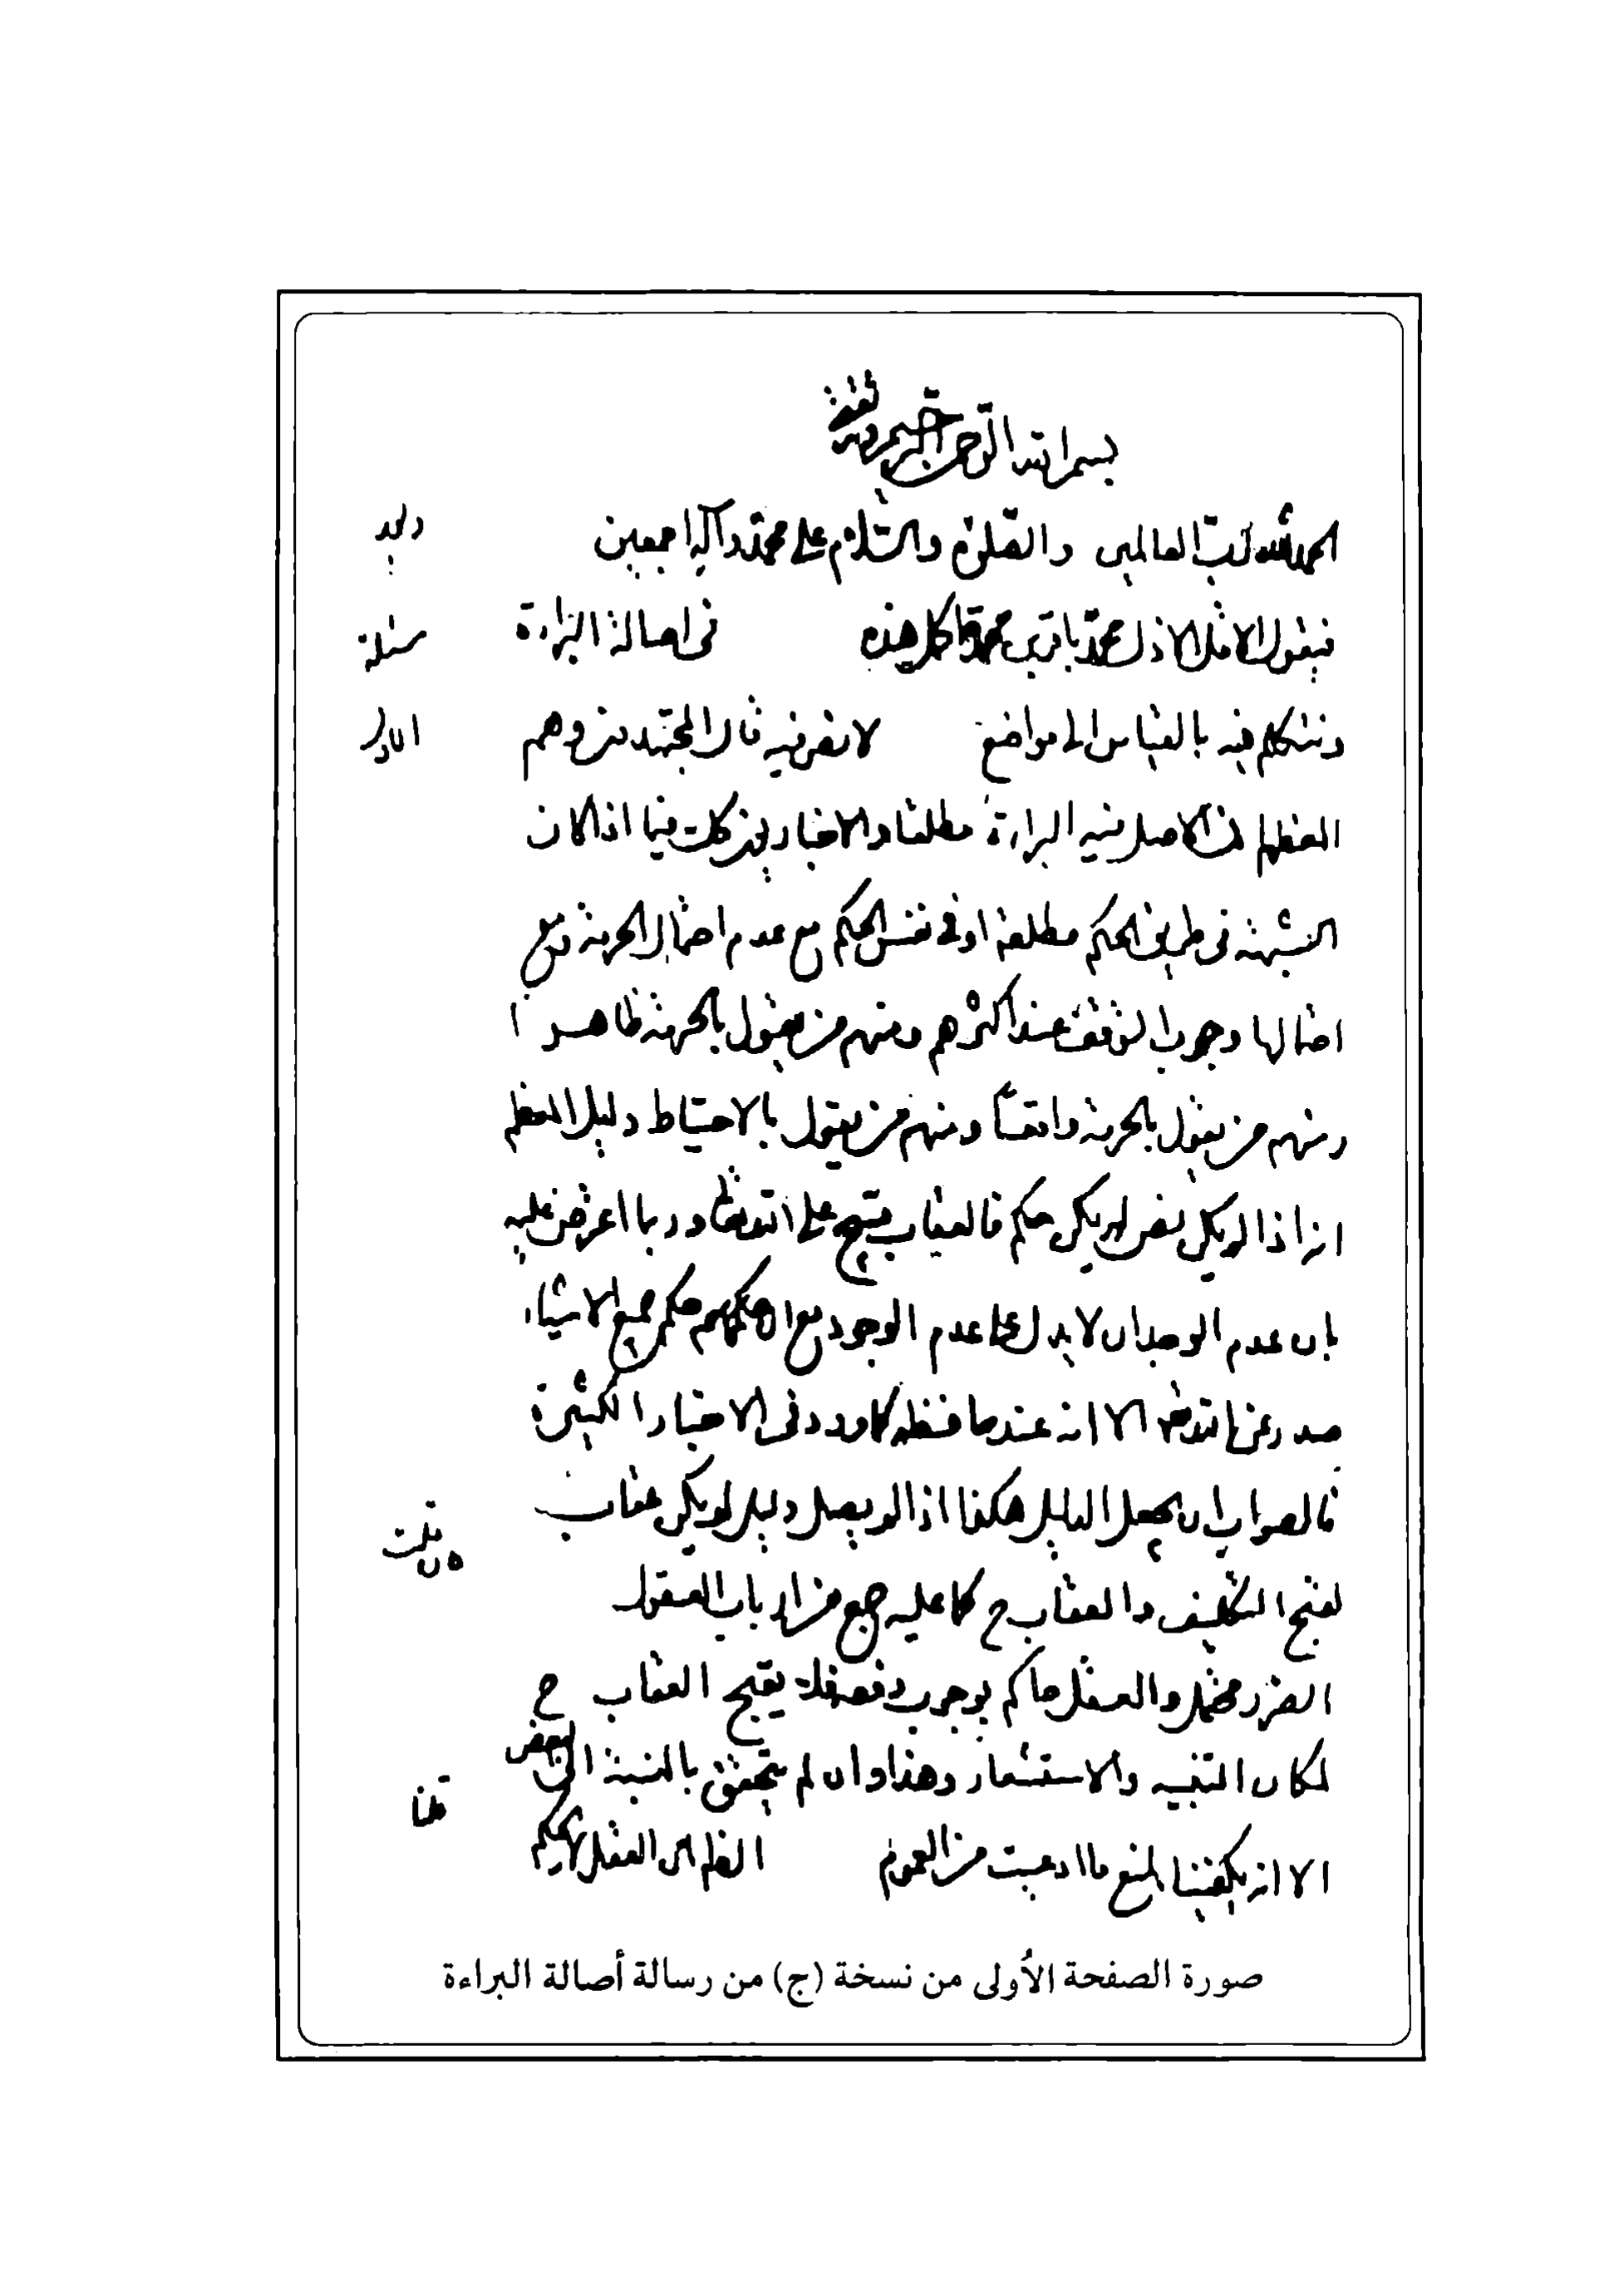 بسم الله الرحمن الرحيم وبه ثقتي
الحمد لله رب العالمين والصلوة والسلام على محمد وآله اجمعين
وبعد
فيقول الاقل الاذل محمد باقر بن محمد اكمل هذه
في اصالة البراءة
مسئلة
ونتكلم فيه بالقياس الى مواضع
لا نص فيه قال المجتهدون وهم
الاول
المعظم ان الاصل فيه البراءة مطلقا والاخباريون كذلك فيما اذا كان
الشبهة في طريق الحكم مطلقا او في نفس الحكم مع عدم احتمال الحرمة ومع
احتمالها وجوب التوقف عند اكثرهم ومنهم من يقول بالحرمة ظاهرا
ومنهم من يقول بالحرمة واقعا ومنهم من يقول بالاحتياط دليل المعظم
انه اذا لم يكن نص لم يكن حكم فالعقاب قبيح على الله تعالى وربما اعترض عليه
بان عدم الوجدان لا يدل على عدم الوجود مع ان حكمهم حكم جميع الاشياء
صدر عن الله تعالى الا انه عند حافظه كما ورد في الاخبار الكثيرة
فالصواب ان يجعل الدليل هكذا اذا لم يصل دليل لم يكن عقاب
لقبح التكليف والعقاب ح كما عليه جميع من ارباب العقول
فان قلت
الضرر محتمل والعقل حاكم بوجوب دفعه فلا يقبح العقاب ح
لمكان التنبيه والاستشعار وهذا وان لم يتحقق بالنسبة الى البعض
الا انه يكفينا لمنع ما ادعيت من العموم
الظاهر ان العقل لا يحكم
قلنا
صورة الصفحة الأولى من نسخة (ج) من رسالة أصالة البراءة